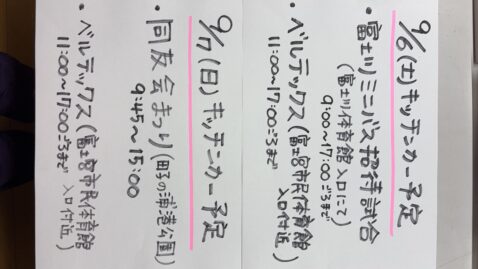 9/6(土)キッチンカー予定
・富士川ミニバス招待試合
(富士川体育館 入口にて)
9:00〜17:00ごろまで
・ベルテックス(富士宮市民体育館
入口付近)
11:00〜17:00ごろまで
9/7(日)キッチンカー予定
・同友会まつり(田子の浦港公園)
9:45〜15:00
・ベルテックス(富士宮市民体育館
入口付近)
11:00〜17:00ごろまで